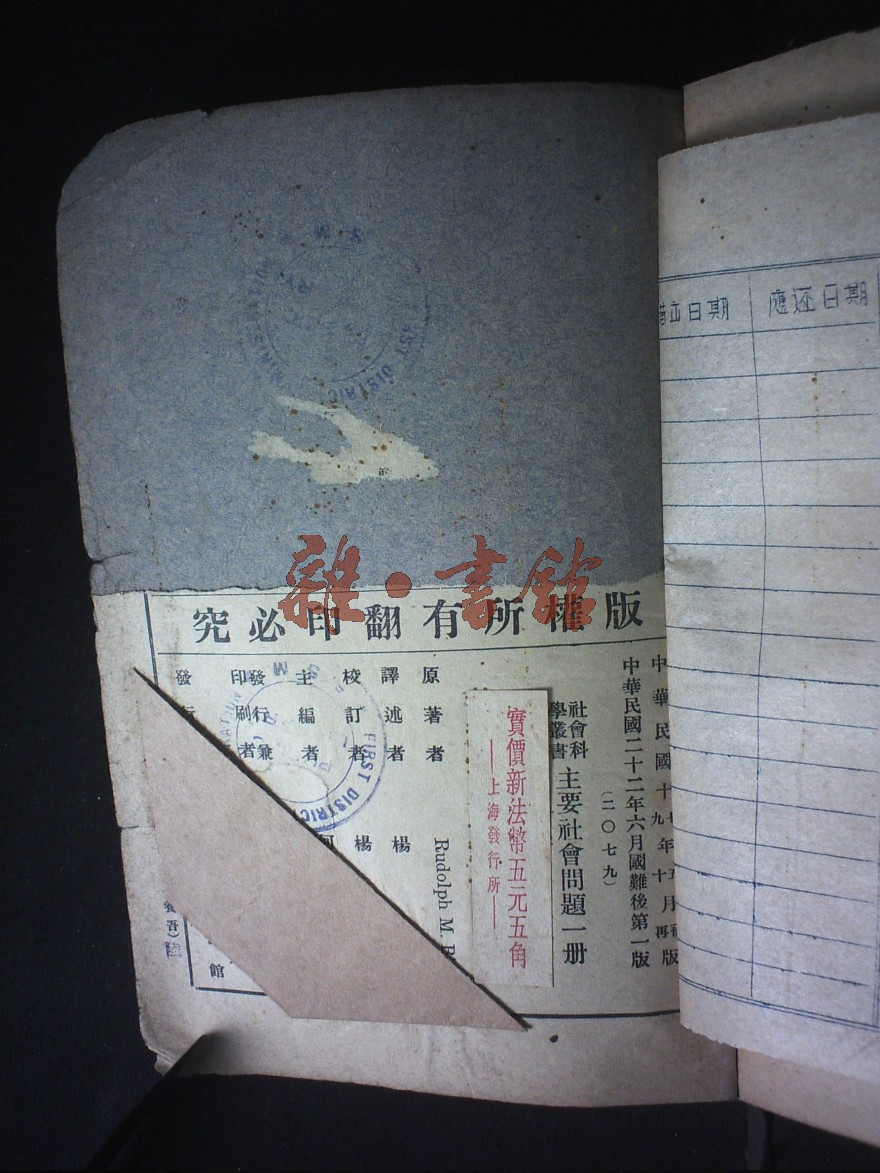 雜·書館
版權所有翻印必究
中華民國十七年五月初版
中華民國十九年十月再版
中華民國二十二年六月國難後第一版
(二〇七九)
社會科學叢書
主要社會問題一册
實價新法幣五元五角
—上海發行所—
原著者 Rudolph M.
譯述者 楊
校訂者 楊
主編者 何
發行兼
印刷者
發行
館
FIRST DISTRICT
FIRST DISTRIC
的
日期
應还日期